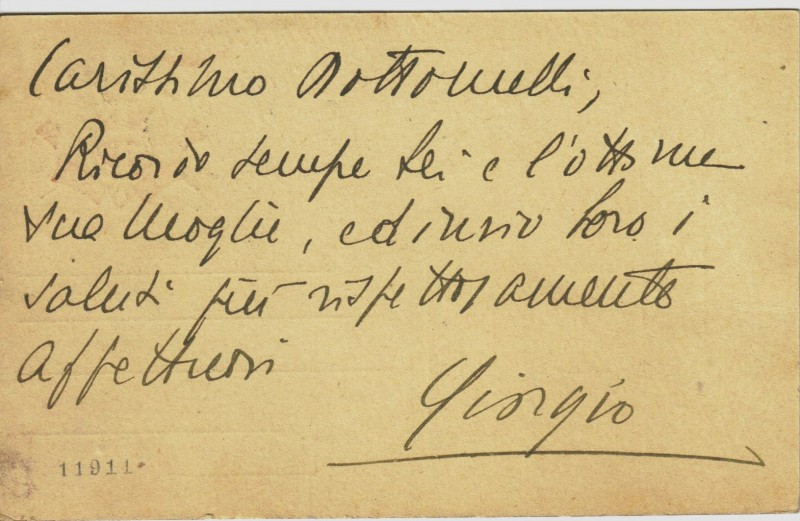 Carissimo Dottorelli,
Ricordo sempre Lei e l'ottima
sua Moglie, ed invio Loro i
saluti più rispettosamente
affettuosi
Giorgio
11911